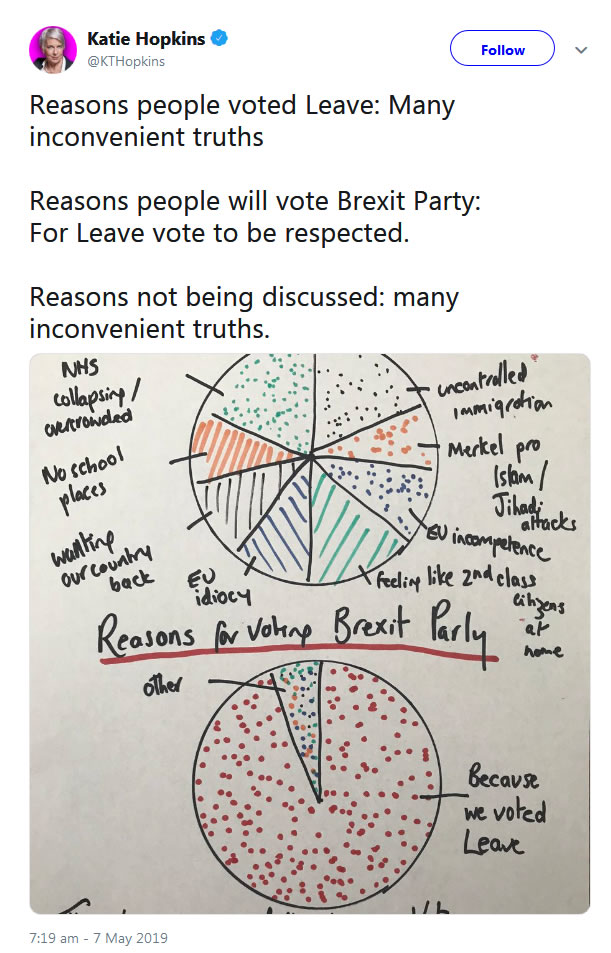 Katie Hopkins
@KTHopkins
Follow
Reasons people voted Leave: Many
inconvenient truths
Reasons people will vote Brexit Party:
For Leave vote to be respected.
Reasons not being discussed: many
inconvenient truths.
NHS
collapsing /
overcrowded
No school
places
wanting
our country
back
EU
idiocy
uncontrolled
immigration
Merkel pro
Islam /
Jihadi
attacks
EU incompetence
feeling like 2nd class
citizens
at
home
Reasons for voting Brexit Party
other
Because
we voted
Leave
7:19 am - 7 May 2019